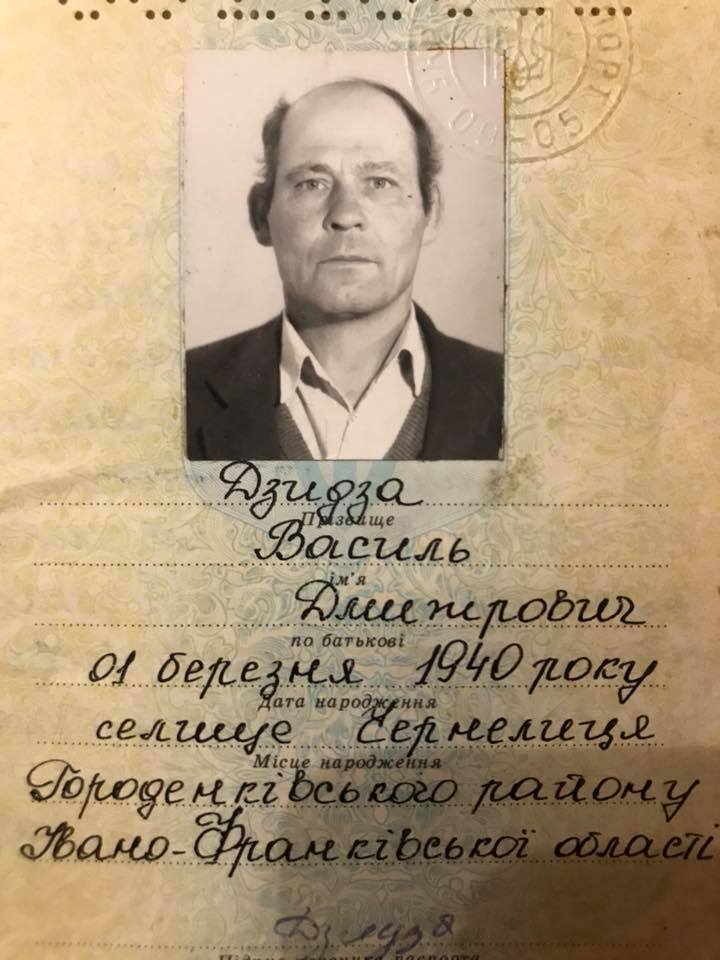 Дзидза
Прізвище
Василь
ім'я
Дмитрович
по батькові
01 березня 1940 року
Дата народження
селище Чернелиця
Місце народження
Городенківського району
Івано-Франківської області
Дзидза